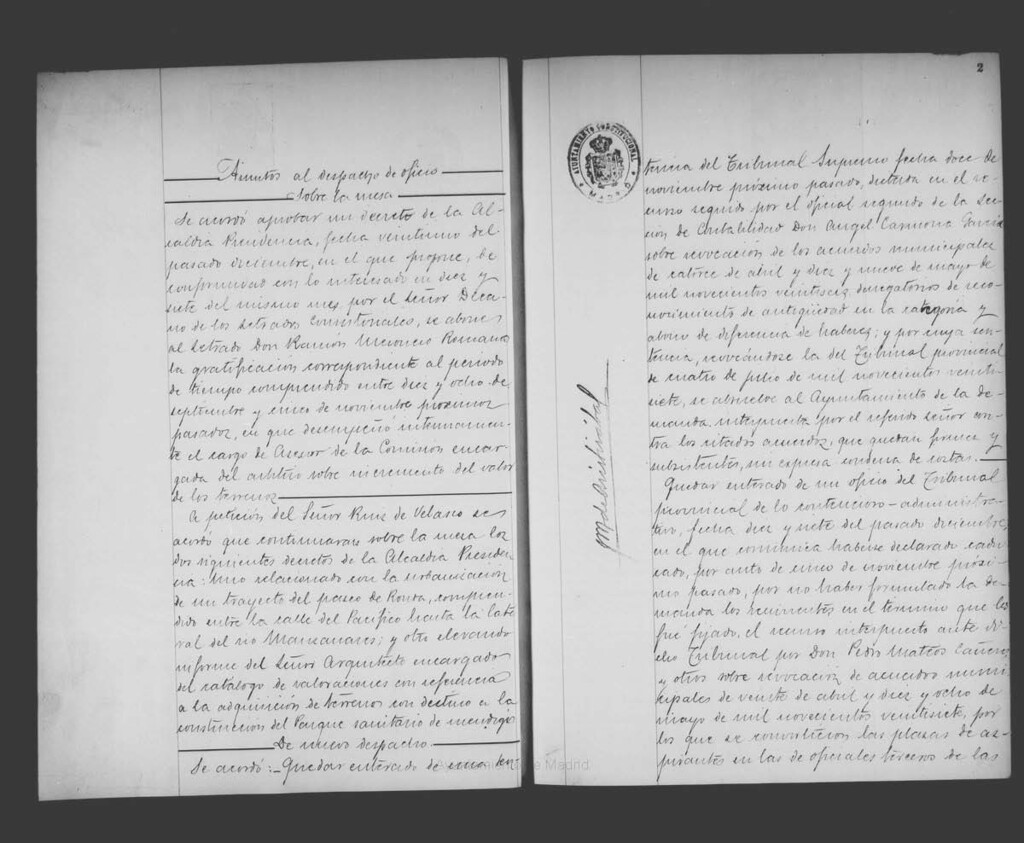 Asuntos al despacho de oficio
Sobre la mesa
Se acordó aprobar un decreto de la Al-
caldía Presidencia, fecha veintiuno del
pasado diciembre, en el que propone, de
conformidad con lo interesado en diez y
siete del mismo mes, por el Señor Deca-
no de los Letrados Consistoriales, se abone
al Letrado Don Ramón Romano
la gratificación correspondiente al periodo
de tiempo comprendido entre diez y ocho de
septiembre y cinco de noviembre próximos
pasados, en que desempeñó interinamen-
te el cargo de Asesor de la Comisión encar-
gada del arbitrio sobre incremento del valor
de los terrenos
A petición del Señor Ruiz de Velasco se
acordó que continuaran sobre la mesa los
dos siguientes decretos de la Alcaldía Presiden-
cia: Uno relacionado con la urbanización
de un trayecto del paseo de Ronda, compren-
dido entre la calle del Pacífico hasta la late-
ral del río Manzanares; y otro elevando
informe del Señor Arquitecto encargado
del catálogo de valoraciones con referencia
a la adquisición de terrenos con destino a la
construcción del Parque sanitario de mendigos
De nuevo despacho
Se acordó: Quedar enterado de una sen
2
AYUNTAMIENTO CONSTITUCIONAL
MADRID
tencia del Tribunal Supremo fecha doce de
noviembre próximo pasado, dictada en el re-
curso seguido por el oficial segundo de la Sec-
ción de Contabilidad Don Angel Carmona García
sobre revocación de los acuerdos municipales
de catorce de abril y diez y nueve de mayo de
mil novecientos veintiseis denegatorios de reco-
nocimiento de antigüedad en la categoría y
abono de diferencia de haberes; y por cuya sen-
tencia, revocándose la del Tribunal provincial
de cuatro de julio de mil novecientos veinti-
siete, se absuelve al Ayuntamiento de la de-
manda interpuesta por el referido señor con-
tra los citados acuerdos, que quedan firmes y
subsistentes, sin expresa condena de costas.
Quedar enterado de un oficio del Tribunal
provincial de lo contencioso-administra-
tivo, fecha diez y siete del pasado diciembre,
en el que comunica haberse declarado cadu-
cado, por auto de cinco de noviembre próxi-
mo pasado, por no haber formulado la de-
manda los recurrentes en el término que les
fué fijado, el recurso interpuesto ante di-
cho Tribunal por Don Pedro Mateos
y otros sobre revocación de acuerdos muni-
cipales de veinte de abril y diez y ocho de
mayo de mil novecientos veintisiete, por
los que se convirtieron las plazas de as-
pirantes en las de oficiales terceros de las